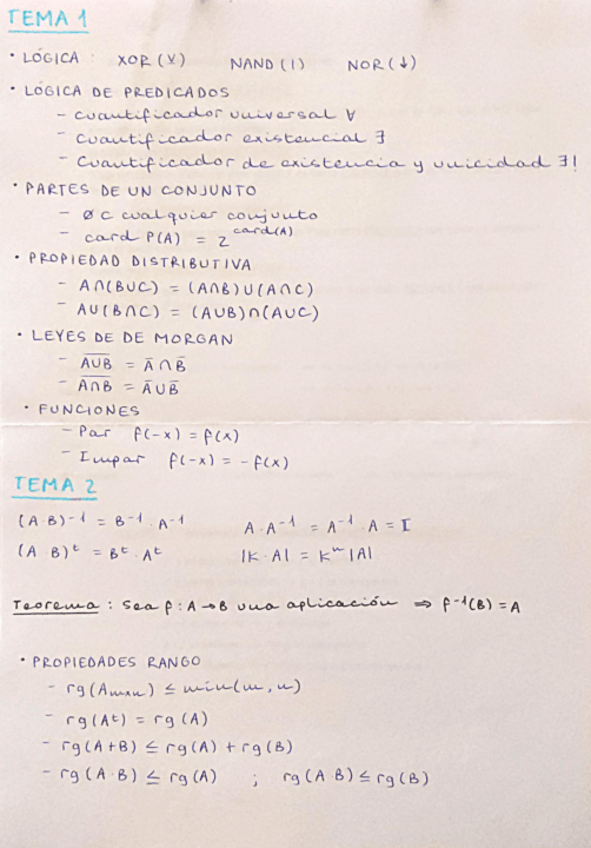 TEMA 1
· LÓGICA : XOR (⊻) NAND (|) NOR (↓)
· LÓGICA DE PREDICADOS
- Cuantificador universal ∀
- Cuantificador existencial ∃
- Cuantificador de existencia y unicidad ∃!
· PARTES DE UN CONJUNTO
- ∅ ⊂ cualquier conjunto
- card P(A) = 2^card(A)
· PROPIEDAD DISTRIBUTIVA
- A∩(B∪C) = (A∩B)∪(A∩C)
- A∪(B∩C) = (A∪B)∩(A∪C)
· LEYES DE DE MORGAN
- \overline{A∪B} = Ā ∩ B̄
- \overline{A∩B} = Ā ∪ B̄
· FUNCIONES
- Par f(-x) = f(x)
- Impar f(-x) = - f(x)
TEMA 2
(A·B)⁻¹ = B⁻¹ · A⁻¹ A·A⁻¹ = A⁻¹·A = I
(A·B)ᵗ = Bᵗ · Aᵗ |K·A| = Kⁿ |A|
Teorema : Sea f : A → B una aplicación ⇒ f⁻¹(B) = A
· PROPIEDADES RANGO
- rg(Aₘₓₙ) ≤ min(m, n)
- rg(Aᵗ) = rg(A)
- rg(A+B) ≤ rg(A) + rg(B)
- rg(A·B) ≤ rg(A) ; rg(A·B) ≤ rg(B)